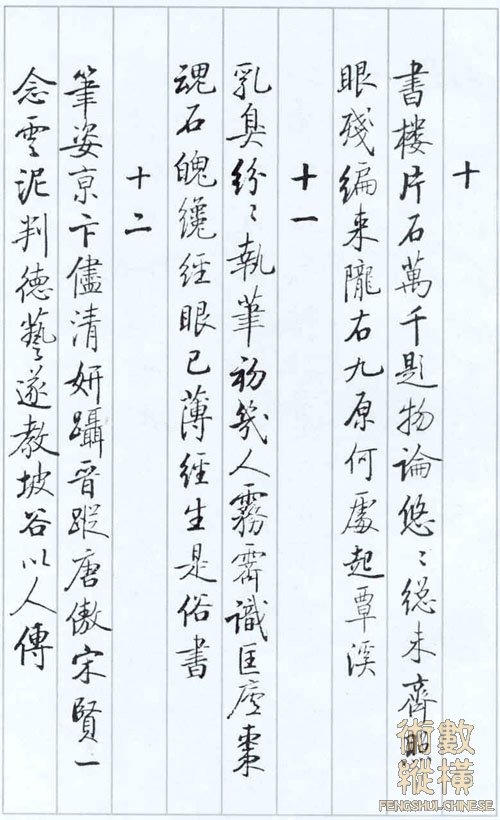 十
書樓片石萬千題物論悠〻總未齊照
眼殘編来隴右九原何處起覃溪
十一
乳臭紛〻執筆初幾人霧霽識匡廬棗
魂石魄纔經眼已薄經生是俗書
十二
筆姿京卞儘清妍躡晉蹤唐傲宋賢一
念雲泥判德藝遂教坡谷以人傳
術數
縱橫
FENGSHUI-CHINESE